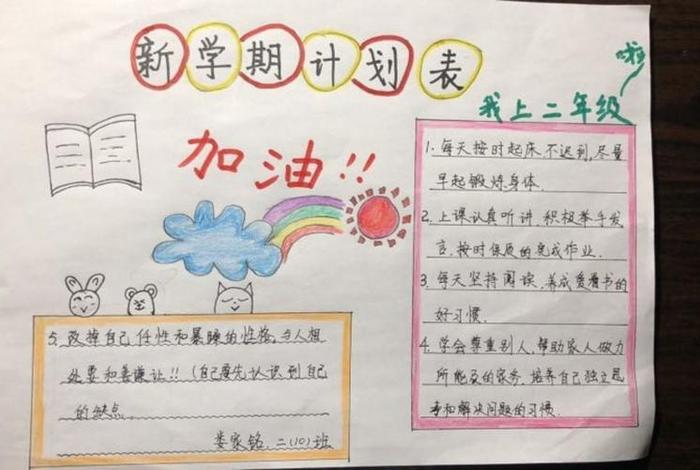 新学期计划表
我上二年级啦
加油!!
1. 每天按时起床,不迟到,尽量
早起锻炼身体.
2. 上课认真听讲,积极举手发
言,按时保质的完成作业.
3. 每天坚持阅读,养成爱看书的
好习惯.
4. 学会尊重别人,帮助家人做力
所能及的家务,培养自己独立思
考和解决问题的习惯.
5. 改掉自己任性和暴躁的性格,与人相
处要和善谦让!!(自己要先认识到自己
的缺点.
娄家铭. 二(10)班